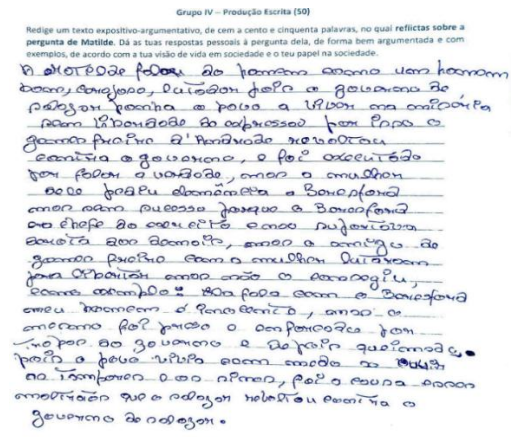 Grupo IV – Produção Escrita (50)
Redige um texto expositivo-argumentativo, de cem a cento e cinquenta palavras, no qual reflictas sobre a
pergunta de Matilde. Dá as tuas respostas pessoais à pergunta dela, de forma bem argumentada e com
exemplos, de acordo com a tua visão de vida em sociedade e o teu papel na sociedade.
A falou do homem como um homem
bom, corajoso, lutador pois o governo de
salazar punha o povo a viver na miséria
sem liberdade de expressar por isso o
gomes freire d'Andrade revoltou
contra o governo, e foi executado
por falar a verdade, mas a mulher
dele pediu a Beresford
mas sem sucesso porque o Beresford
o chefe do exercito
aos demais, mas o amigo de
gomes freire com a mulher lutaram
para libertar mas não o consegiu,
como exemplo: Ela fala com o Beresford
meu homem é inocento, mas o
mesmo foi preso e enforcado por
do governo e depois queimado.
pois o povo vivia com medo de
os tambores e os sinos, foi a causa
que o salazar revoltou contra o
governo de salazar.